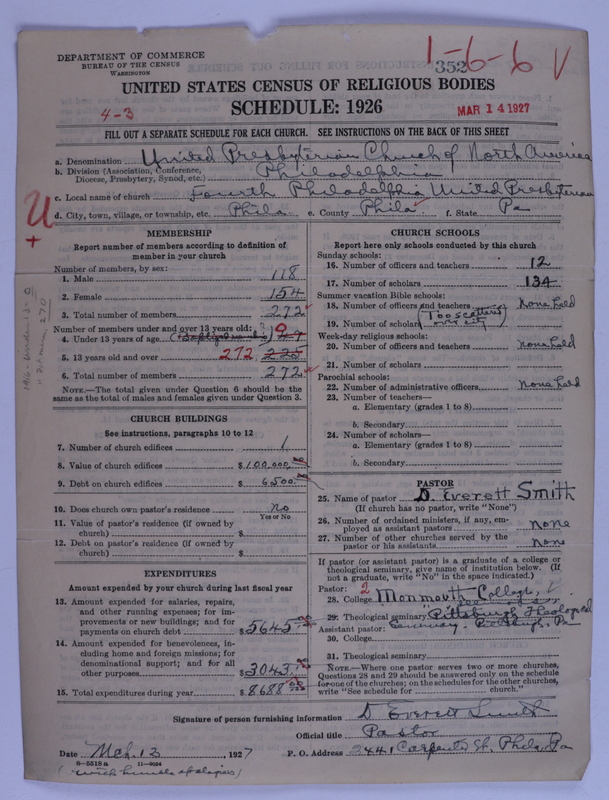 DEPARTMENT OF COMMERCE
BUREAU OF THE CENSUS
WASHINGTON
1-6-6 V
352
UNITED STATES CENSUS OF RELIGIOUS BODIES
4-3
SCHEDULE: 1926
MAR 14 1927
FILL OUT A SEPARATE SCHEDULE FOR EACH CHURCH. SEE INSTRUCTIONS ON THE BACK OF THIS SHEET
a. Denomination United Presbyterian Church of North America
b. Division (Association, Conference, Diocese, Presbytery, Synod, etc.) Philadelphia
c. Local name of church Fourth Philadelphia United Presbyterian
d. City, town, village, or township, etc. Phila e. County Phila f. State Pa
U
+
MEMBERSHIP
Report number of members according to definition of
member in your church
Number of members, by sex:
1. Male 118
2. Female 154
3. Total number of members 272
Number of members under and over 13 years old:
4. Under 13 years of age 0
5. 13 years old and over 272 225
6. Total number of members 272
NOTE.—The total given under Question 6 should be
the same as the total of males and females given under Question 3.
CHURCH BUILDINGS
See instructions, paragraphs 10 to 12
7. Number of church edifices 1
8. Value of church edifices $100,000.00
9. Debt on church edifices $6,500.00
10. Does church own pastor's residence no
Yes or No
11. Value of pastor's residence (if owned by
church) $
12. Debt on pastor's residence (if owned by
church) $
EXPENDITURES
Amount expended by your church during last fiscal year
13. Amount expended for salaries, repairs,
and other running expenses; for im-
provements or new buildings; and for
payments on church debt $5645.00
14. Amount expended for benevolences, in-
cluding home and foreign missions; for
denominational support; and for all
other purposes $3043.00
15. Total expenditures during year $8688.00
CHURCH SCHOOLS
Report here only schools conducted by this church
Sunday schools:
16. Number of officers and teachers 12
17. Number of scholars 134
Summer vacation Bible schools:
18. Number of officers and teachers none held
19. Number of scholars (Too scattered over city)
Week-day religious schools:
20. Number of officers and teachers none held
21. Number of scholars
Parochial schools:
22. Number of administrative officers none held
23. Number of teachers—
a. Elementary (grades 1 to 8)
b. Secondary
24. Number of scholars—
a. Elementary (grades 1 to 8)
b. Secondary
PASTOR
25. Name of pastor D. Everett Smith
(If church has no pastor, write "None")
26. Number of ordained ministers, if any, em-
ployed as assistant pastors none
27. Number of other churches served by the
pastor or his assistants none
If pastor (or assistant pastor) is a graduate of a college or
theological seminary, give name of institution below. (If
not a graduate, write "No" in the space indicated.)
Pastor: 2
28. College Monmouth College,
29. Theological seminary Pittsburgh Theological
Assistant pastor: Seminary. Pittsburgh, Pa
30. College
31. Theological seminary
NOTE.—Where one pastor serves two or more churches,
Questions 28 and 29 should be answered only on the schedule
for one of the churches; on the schedules for the other churches,
write "See schedule for church."
Signature of person furnishing information D. Everett Smith
Official title Pastor
Date Mch. 12, 1927 P. O. Address 2441 Carpenter St. Phila, Pa
8-5518 a 11-9054
(with humble apologies)